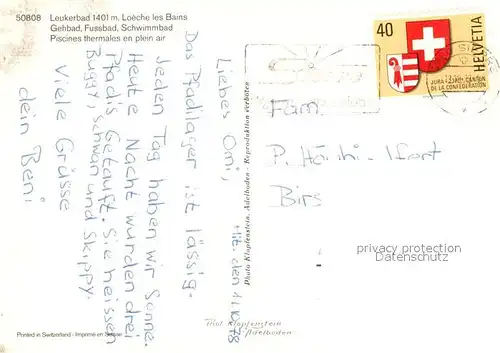 50808 Leukerbad 1401 m. Loèche les Bains
Gehbad, Fussbad, Schwimmbad
Piscines thermales en plein air
Liebes Omi,
den 11.10.78
Das Pfadilager ist lässig.
Jeden Tag haben wir Sonne.
Heute Nacht wurden drei
Pfadis Getauft. Sie heissen
Buggi, Schwan und Skippy.
Viele Grüsse
dein Beni
Photo Klopfenstein, Adelboden - Reproduktion verboten
40
HELVETIA
JURA
CANTON
DE LA CONFEDERATION
Fam.
P.
Birs
privacy protection
Datenschutz
Phot. Klopfenstein
Adelboden
Printed in Switzerland - Imprimé en Suisse